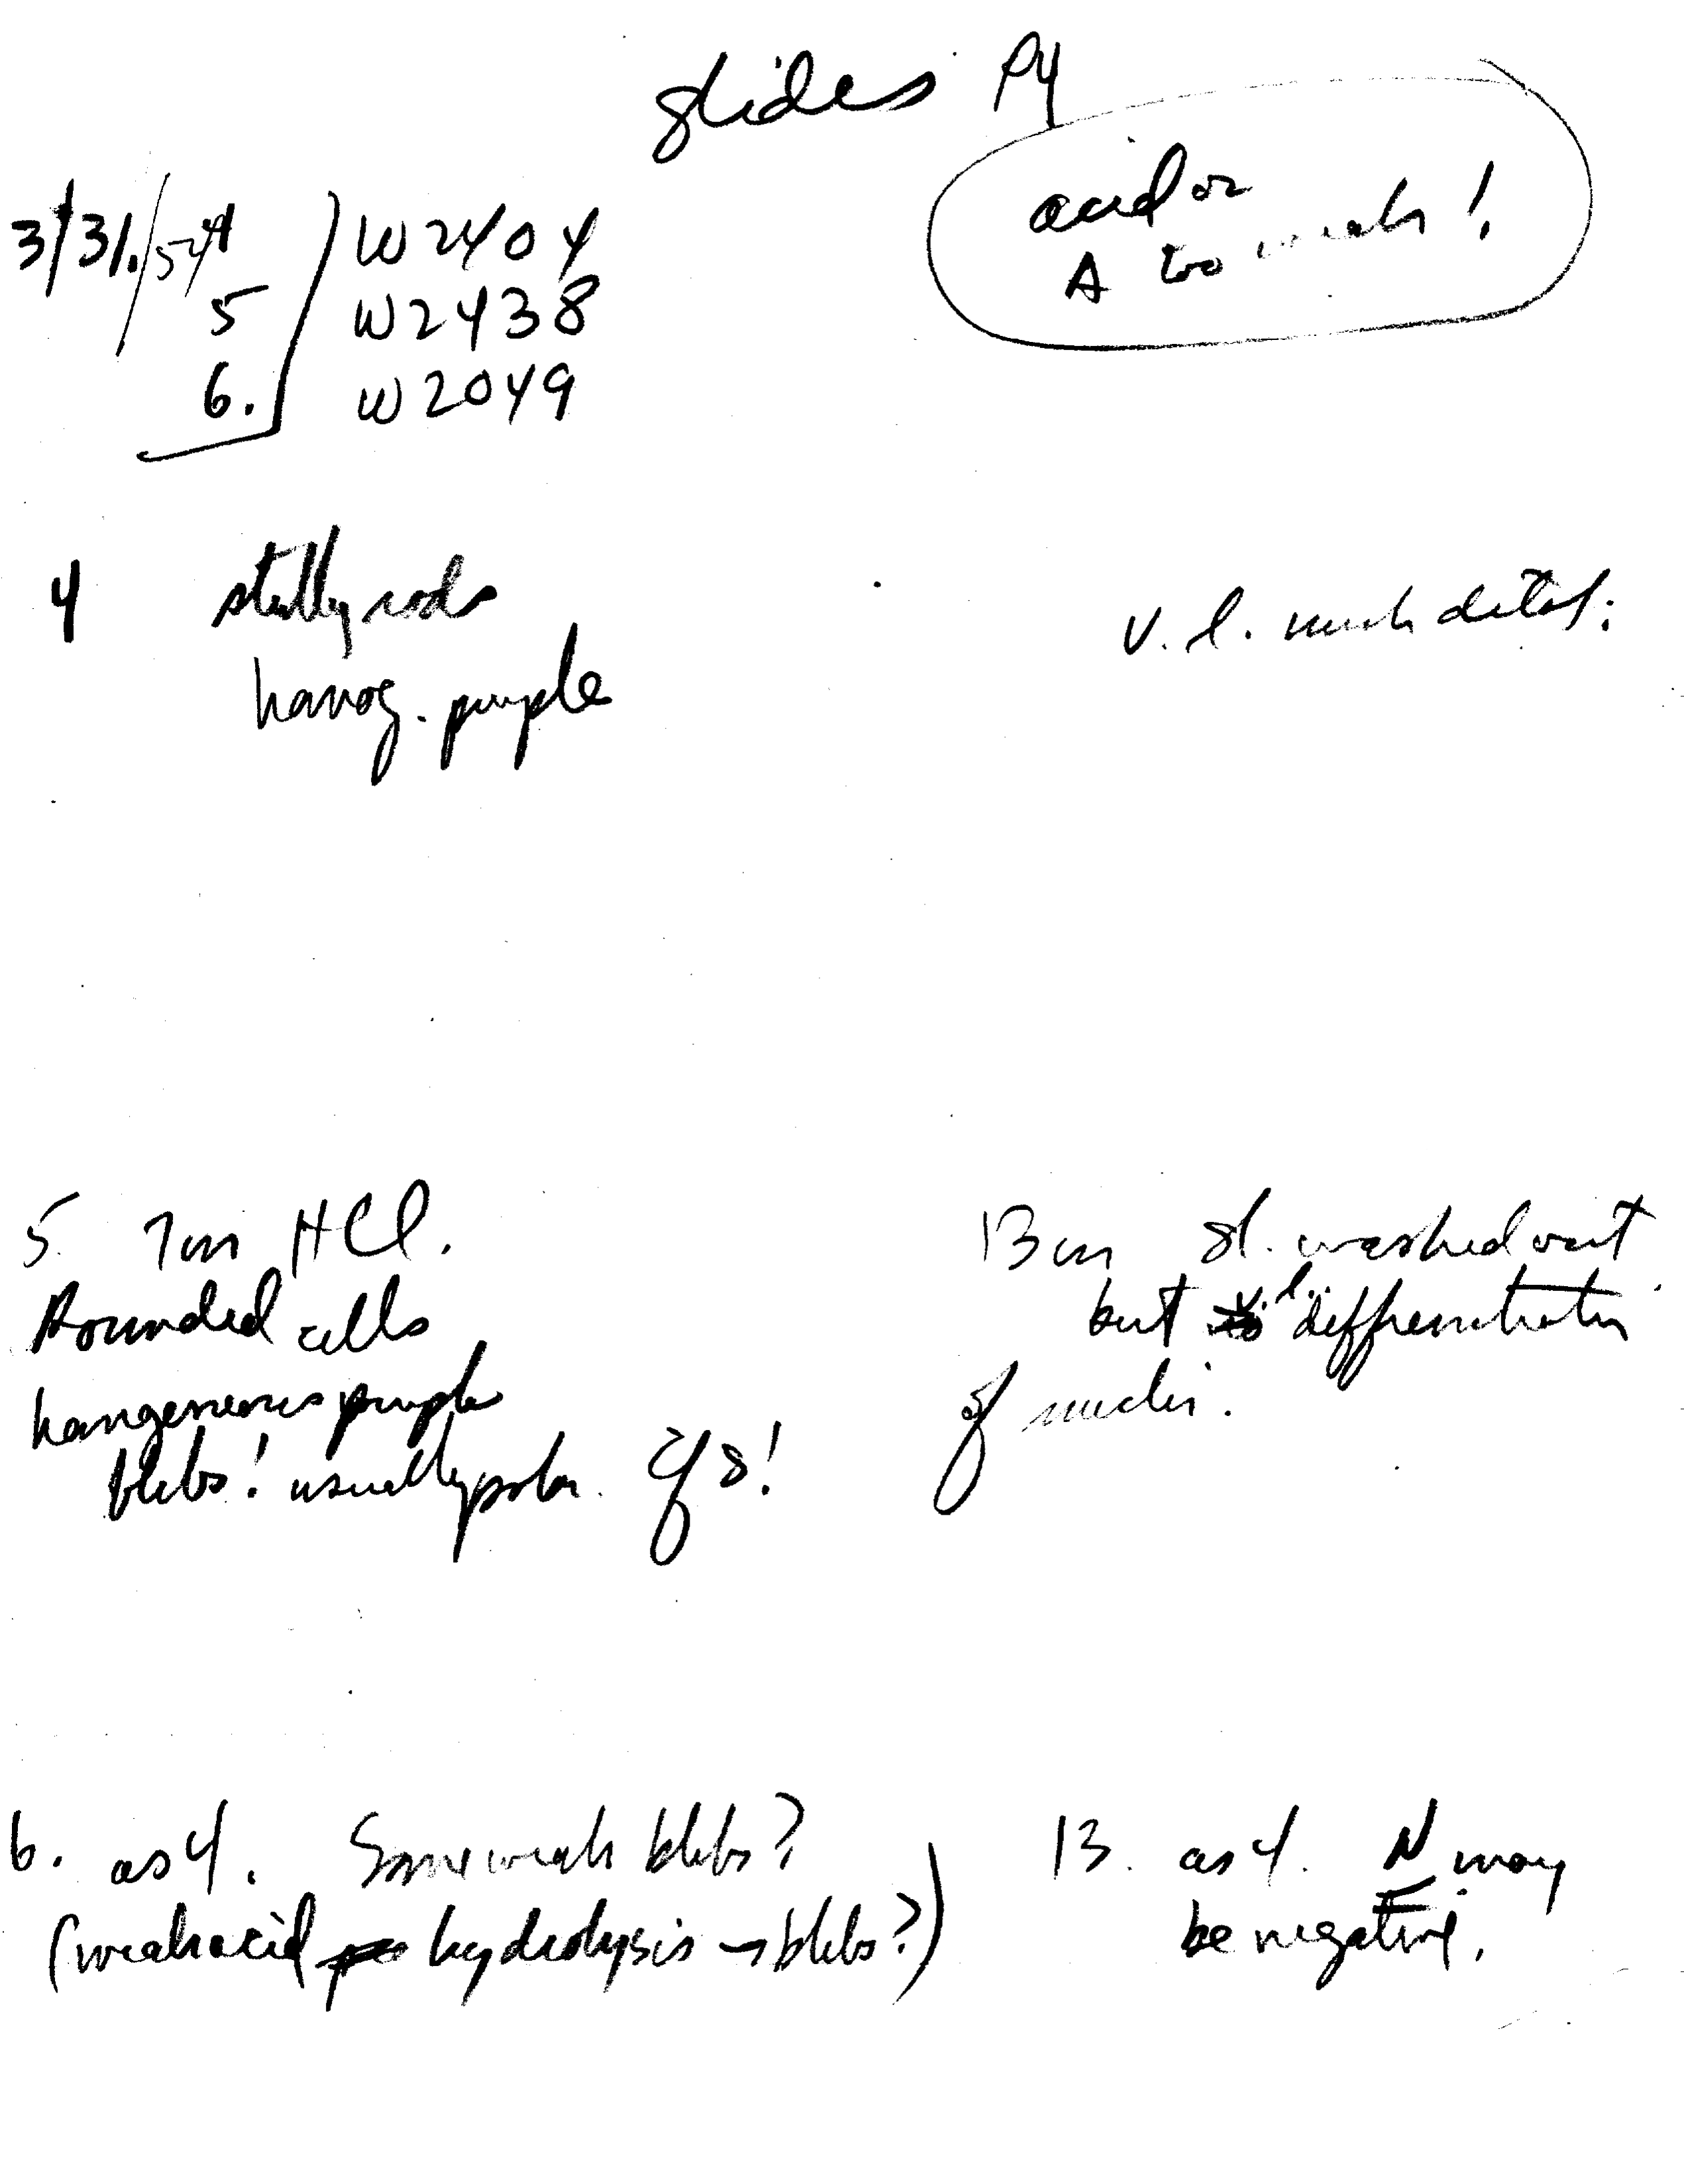 slides P4
acid or
Δ too weak!
3/31/54 4 W2404
5 W2438
6. W2049
4 stubby rods
homog. purple
v. l. much detail.
5. 7 m HCl.
Rounded cells
homogeneous purple
blebs! usually polar. cf 8!
13 m sl. washed out
but v. l. differentiation
of nuclei.
6. as 4. Some weak blebs?
(weak acid hydrolysis → blebs?)
13. as 4. N may
be negative.